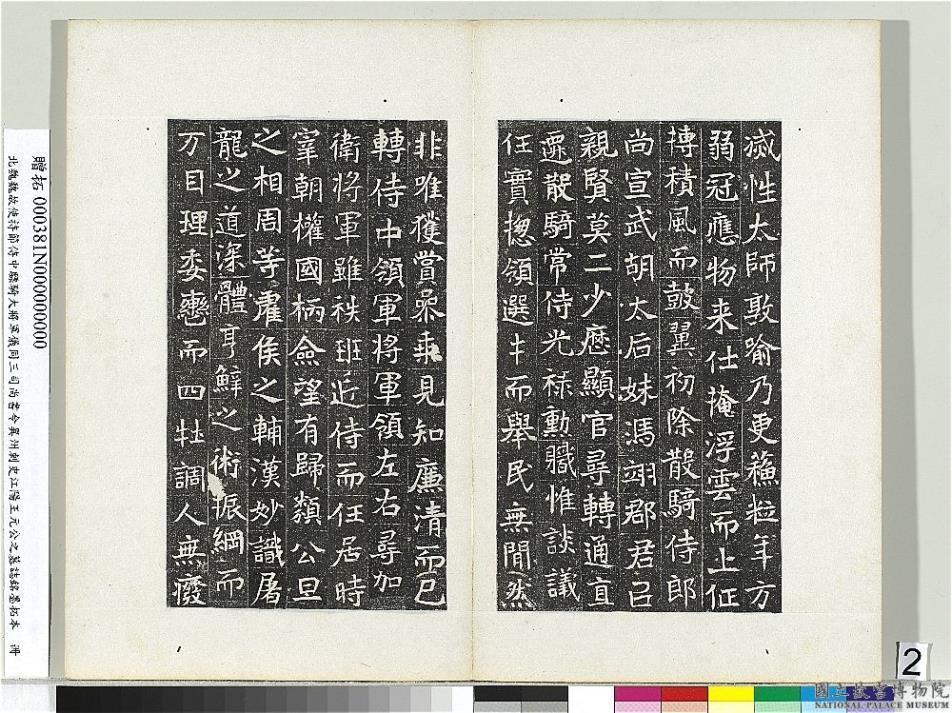 滅性太師敦喻乃更蘓粒年方
弱冠應物来仕掩浮雲而上征
摶積風而鼓翼初除散騎侍郎
尚宣武胡太后妹馮翊郡君㠯
親賢莫二少歷顯官尋轉通直
遷散騎常侍光祿勳職惟談議
任實揔領選士而舉民無閒然
非唯獲賞參乘見知廉清而已
轉侍中領軍將軍領左右尋加
衛將軍雖秩班近侍而任居時
宰朝權國柄僉望有歸類公旦
之相周等霍侯之輔漢妙識屠
龍之道深體亨鮮之術振綱而
万目理委轡而四牡調人無癈
贈拓 000381N000000000
北魏魏故使持節侍中驃騎大將軍儀同三司尚書令冀州刺史江陽王元公之墓誌銘墨拓本 冊
2
國立故宮博物院
NATIONAL PALACE MUSEUM